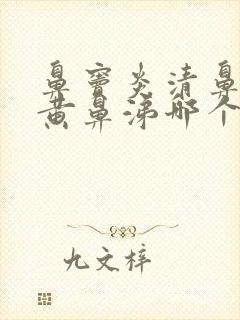 鼻窦炎清鼻
黄鼻涕哪个
九文梓